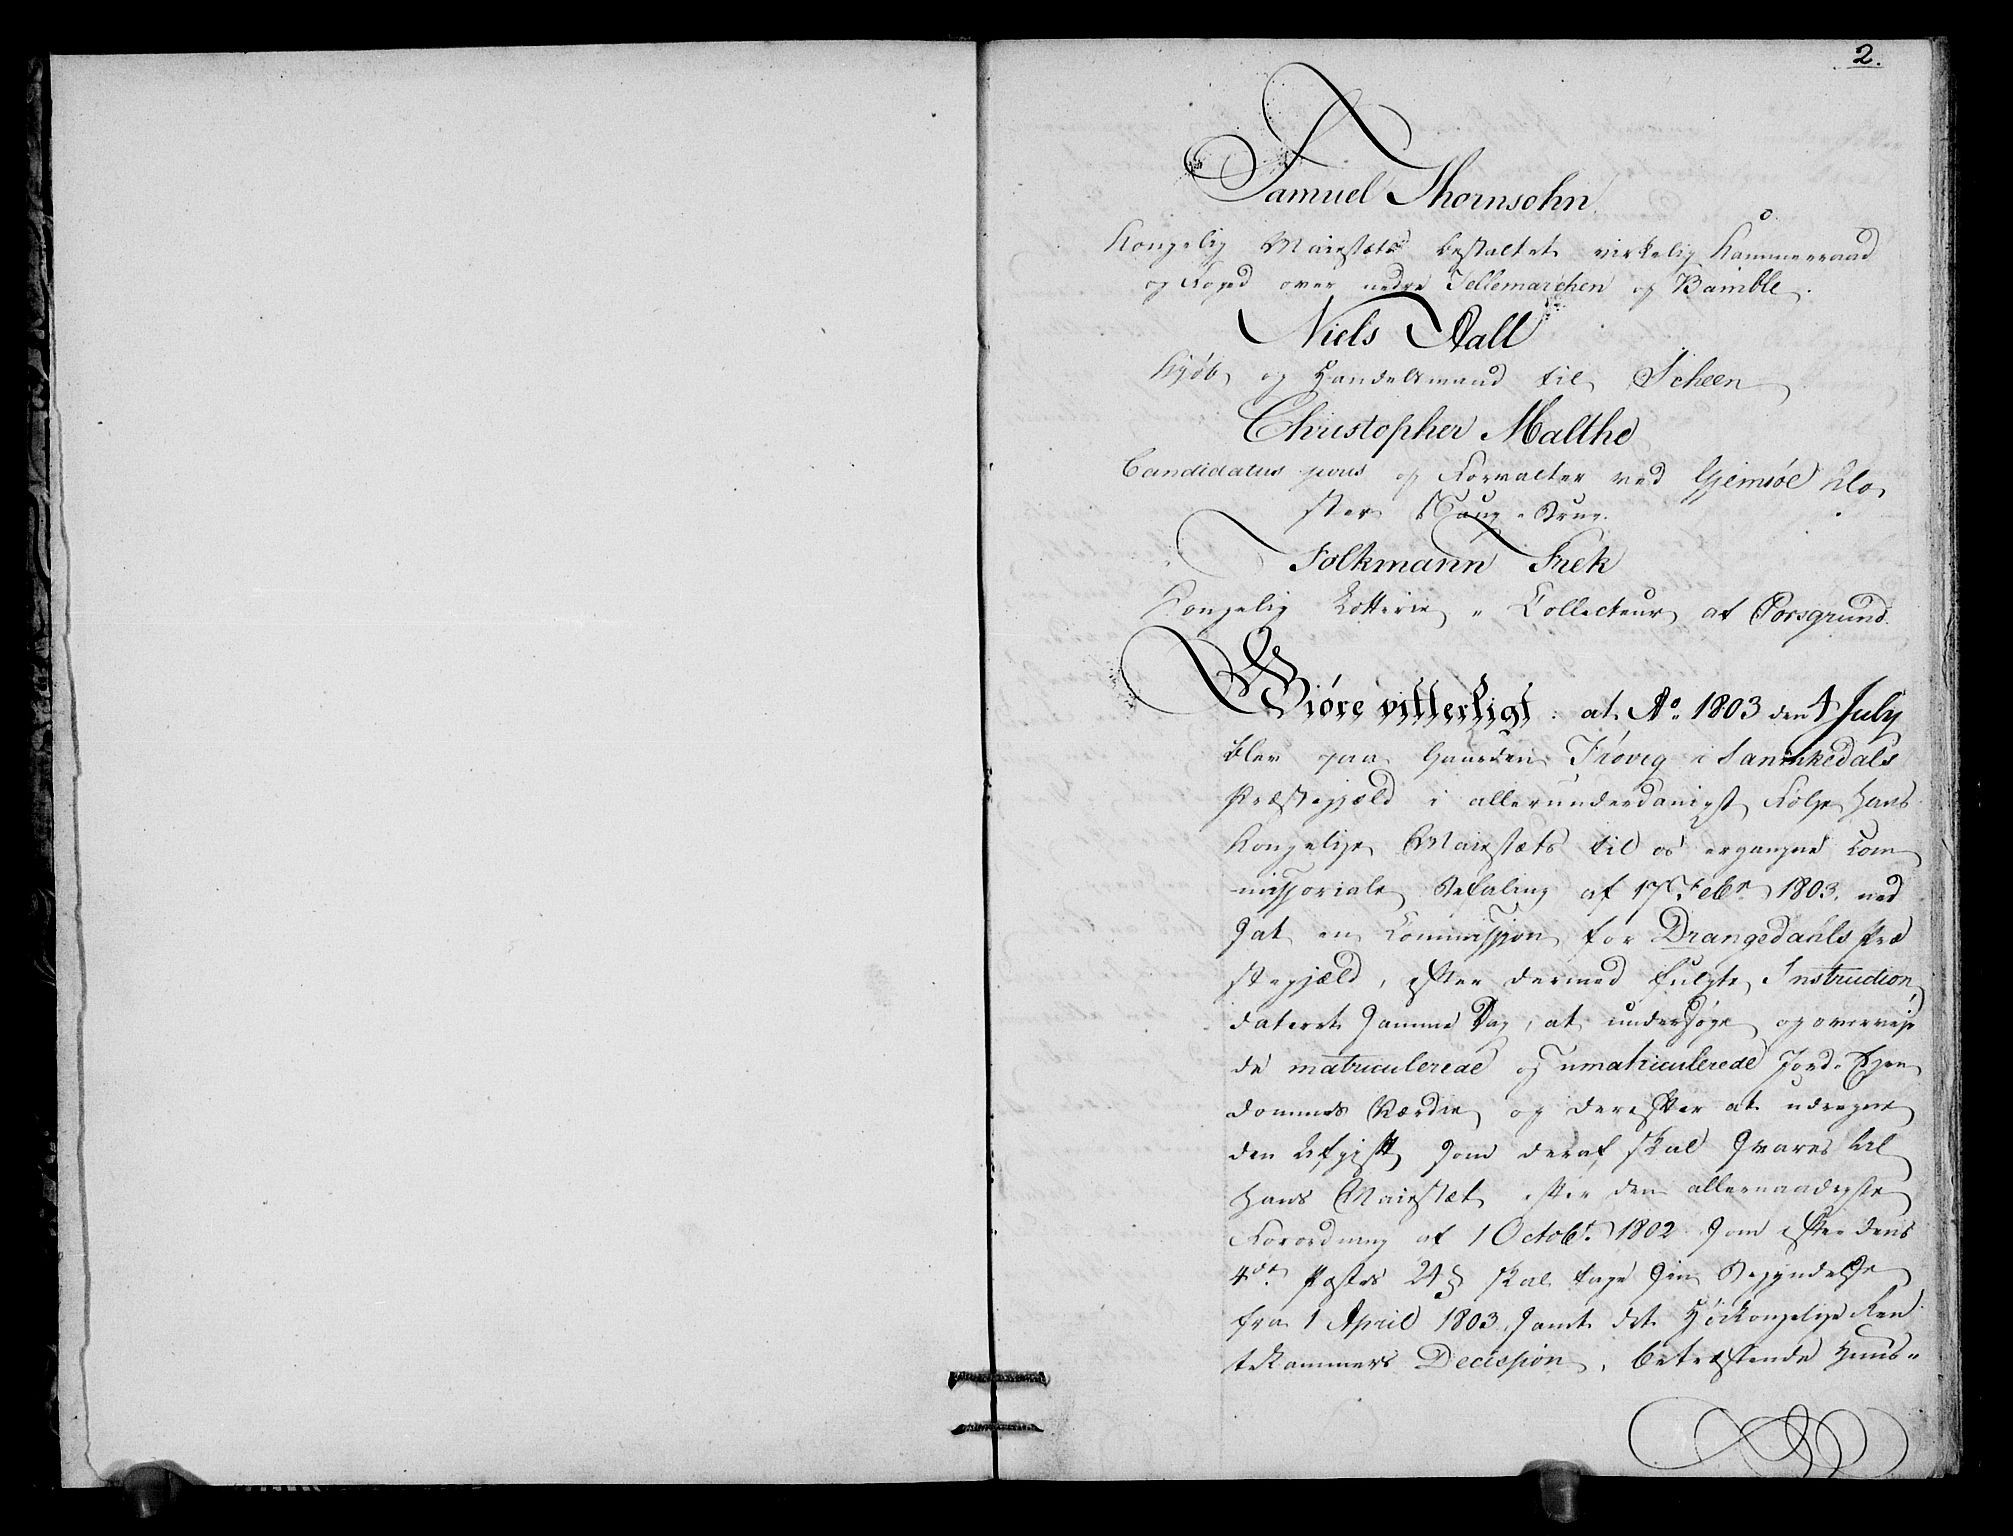 2.
Samuel Thornsohn
Kongelig Maiestæts bestaltet virkelig Kammerraad
og Foged over nedre Tellemarchen og Bamble.
Niels Aall
Kjøb og Handelsmand til Scheen
Christopher Malthe
Candidatus juris og Forvalter ved Gjemsøe Klo
ster Saug-Brug.
Folkmann Friek
Kongelig Lotterie-Collecteur af Porsgrund.
Giøre vitterligt: at Ao. 1803 den 4 July
blev paa Gaarden Frøvig i Sannikedals
Præstegjæld i allerunderdanigst Følge Hans
Kongelige Maiestæts til os ergangne Com
missoriale Befaling af 17 Febr. 1803. ned
sat en Commission for Drangedahls Præ
stegjæld, efter dermed fulgte Instruction,
dateret samme Dag, at undersøge og overveje
de matriculerede og umatriculerede Jord-Ejen
dommes Værdie og derefter at udregne
den Afgift som deraf skal svares til
Hans Maiestæt efter den allernaadigste
Forordning af 1 Octobr. 1802 som efter dens
4de Posts 24 § skal tage sin Begyndelse
fra 1 April 1803 samt det Høikongelige Ren
tekammers Decission, betræffende Huus-